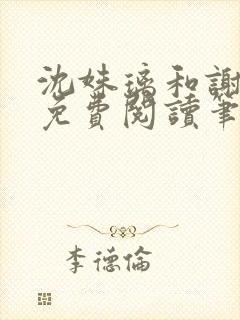 沈妹璃和謝
免費閱讀筆
李德倫